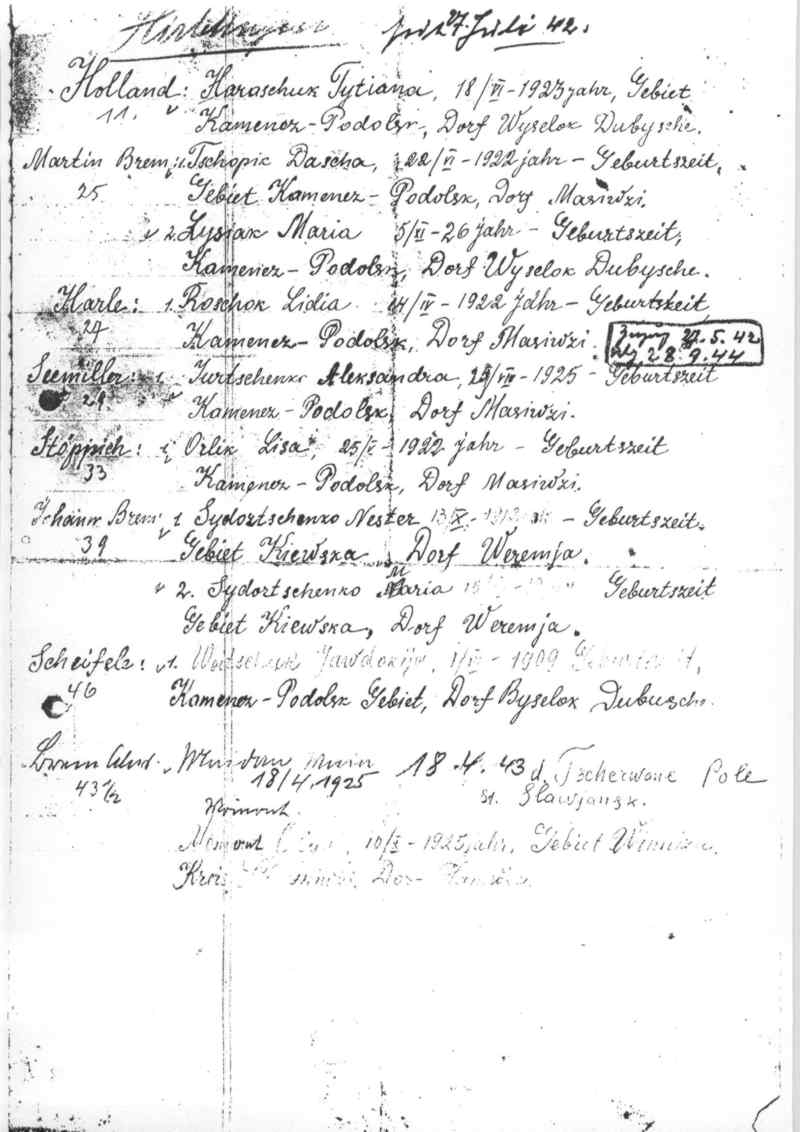 27. Juli 42.
Holland: Haraschuk Tytiana, 18/VI - 1923 jahr, Gebiet
11. Kamenez-Podolsk, Dorf Wyselok Dubysche.
Martin Brem: 1. Tschopik Dascha, 22/VI - 1922 jahr - Geburtszeit,
25 Gebiet Kamenez- Podolsk, Dorf Masiwzi.
2. Lysiak Maria 5/XI - 26 jahr - Geburtszeit,
Kamenez - Podolsk, Dorf Wyselok Dubysche.
Harle: 1. Roschok Lidia 14/IV - 1922 jahr - Geburtszeit,
24 Kamenez-Podolsk, Dorf Masiwzi. 22.5.42
28.9.44
Seemiller: 1. Jurtschenko Aleksandra, 29/VIII - 1925 - Geburtszeit
29 Kamenez-Podolsk, Dorf Masiwzi.
Stöppich: 1. Orlik Lisa, 25/X - 1922 jahr - Geburtszeit
33 Kamenez - Podolsk, Dorf Masiwzi.
Johann Brem: 1. Sydortschenko Nester 13/IX - Geburtszeit.
39 Gebiet Kiewska, Dorf Weremja.
2. Sydortschenko Maria Geburtszeit
Gebiet Kiewska, Dorf Weremja.
Scheifele: 1. Jawdokija, - 1909
46 Kamenez-Podolsk Gebiet, Dorf Byselok Dubusche.
Brem 18.4.43 d. Tscherwone Pole
43 1/2 18/4.1925 st. Slawjansk.
10/X - 1925 jahr, Gebiet
Kreis Dorf